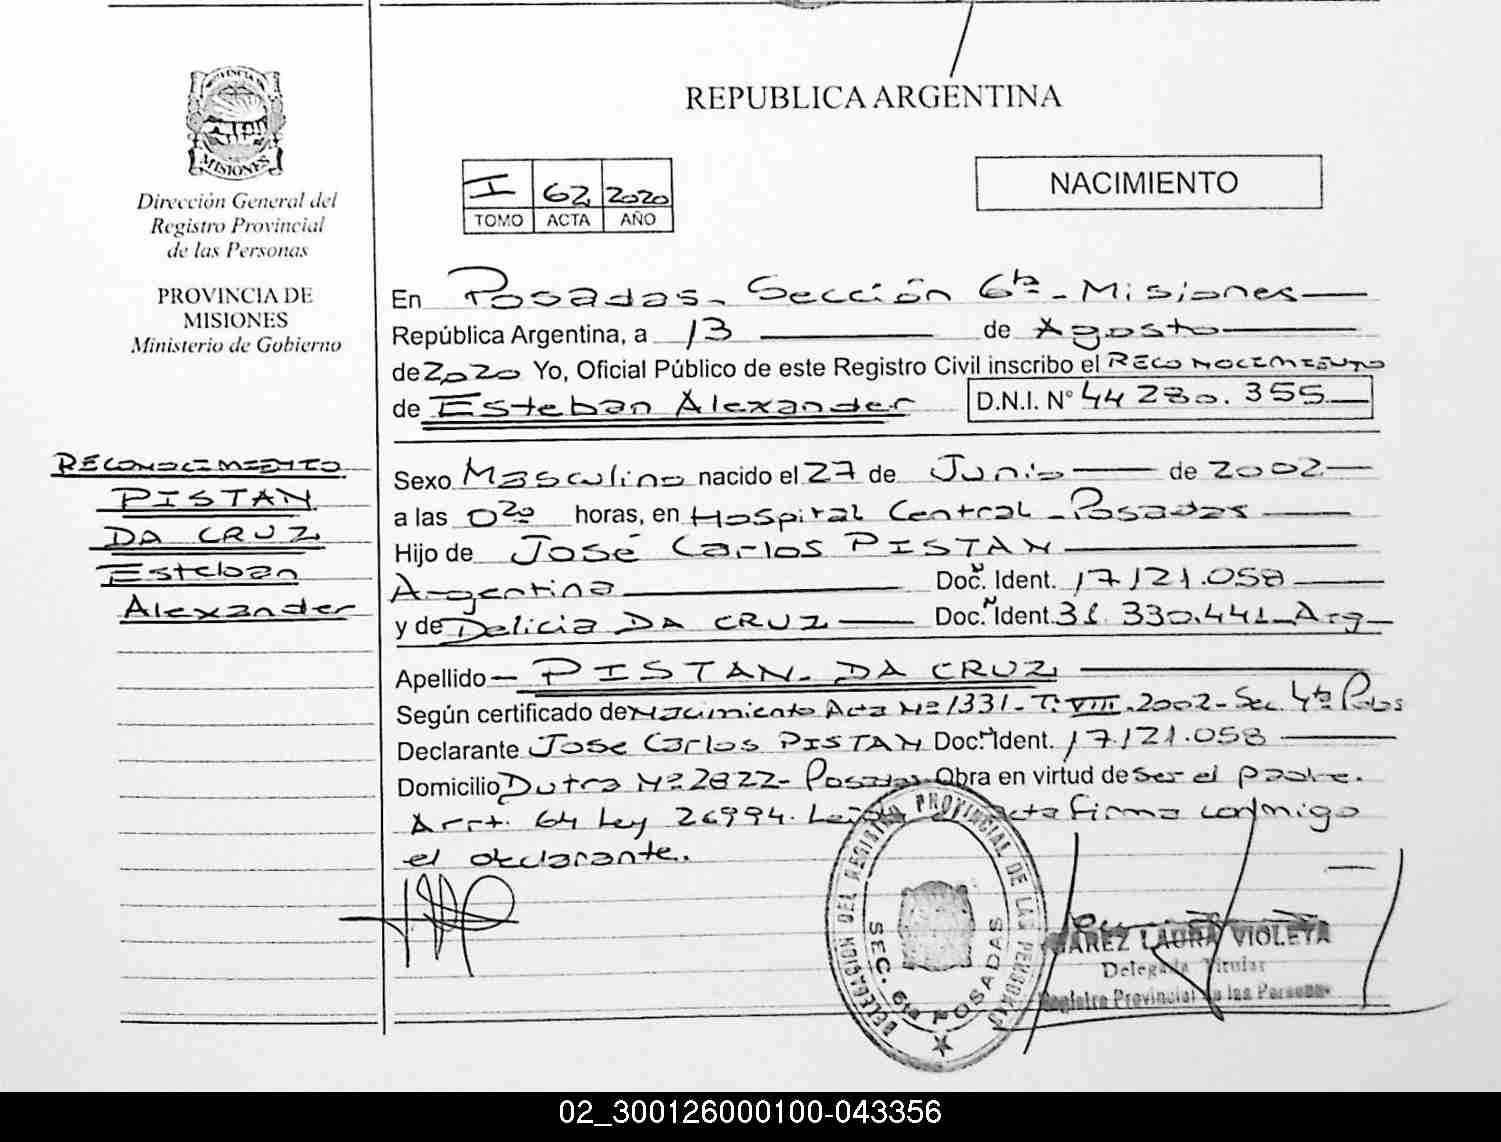 REPUBLICA ARGENTINA
PROVINCIA DE
MISIONES
Dirección General del
Registro Provincial
de las Personas
PROVINCIA DE
MISIONES
Ministerio de Gobierno
I 62 2020
TOMO ACTA AÑO
NACIMIENTO
En Posadas - Sección 6ta - Misiones
República Argentina, a 13 de Agosto
de 2020 Yo, Oficial Público de este Registro Civil inscribo el RECONOCIMIENTO
de Esteban Alexander D.N.I. N° 44 280.355
RECONOCIMIENTO
PISTAN
DA CRUZ
Esteban
Alexander
Sexo Masculino nacido el 27 de Junio de 2002
a las 0 20 horas, en Hospital Central - Posadas
Hijo de José Carlos PISTAN
Argentina Doc. Ident. 17.121.058
y de Delicia DA CRUZ Doc. Ident. 31.330.441 - Arg
Apellido PISTAN - DA CRUZ
Según certificado de Nacimiento Acta Nº 1331 - T: VIII - 2002 - Sec. 4ta Pdas
Declarante Jose Carlos PISTAN Doc. Ident. 17.121.058
Domicilio Dutra Nº 2822 - Posadas Obra en virtud de ser el padre.
Arrt. 64 Ley 26994. acta firma conmigo
el declarante.
DELEGACION DEL REGISTRO PROVINCIAL DE LAS PERSONAS
SEC. 6ta POSADAS
LAURA VIOLETA
Delegada Titular
Registro Provincial de las Personas
02_300126000100-043356